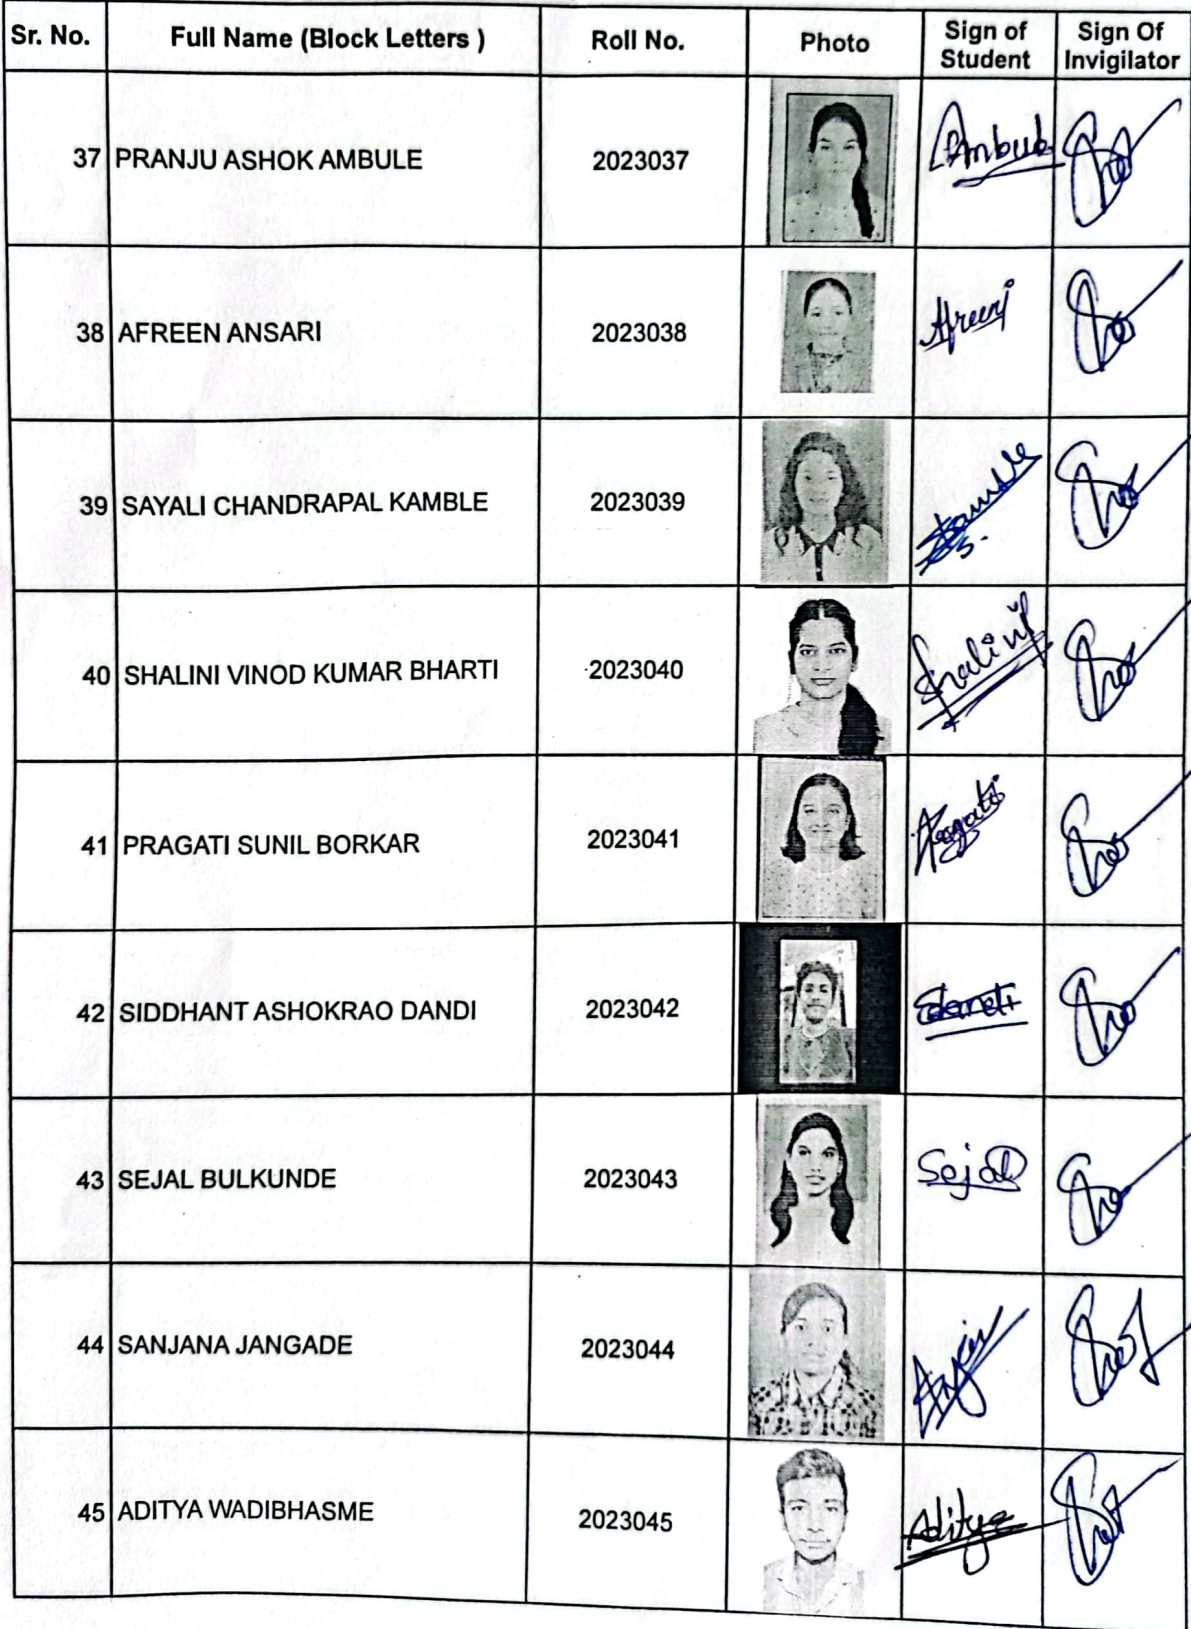 Sr. No. Full Name (Block Letters ) Roll No. Photo Sign of Student Sign Of Invigilator
37 PRANJU ASHOK AMBULE 2023037 Ambule
38 AFREEN ANSARI 2023038 Afreen
39 SAYALI CHANDRAPAL KAMBLE 2023039
40 SHALINI VINOD KUMAR BHARTI 2023040 Shalini
41 PRAGATI SUNIL BORKAR 2023041 Pragati
42 SIDDHANT ASHOKRAO DANDI 2023042
43 SEJAL BULKUNDE 2023043 Sejal
44 SANJANA JANGADE 2023044
45 ADITYA WADIBHASME 2023045 Aditya